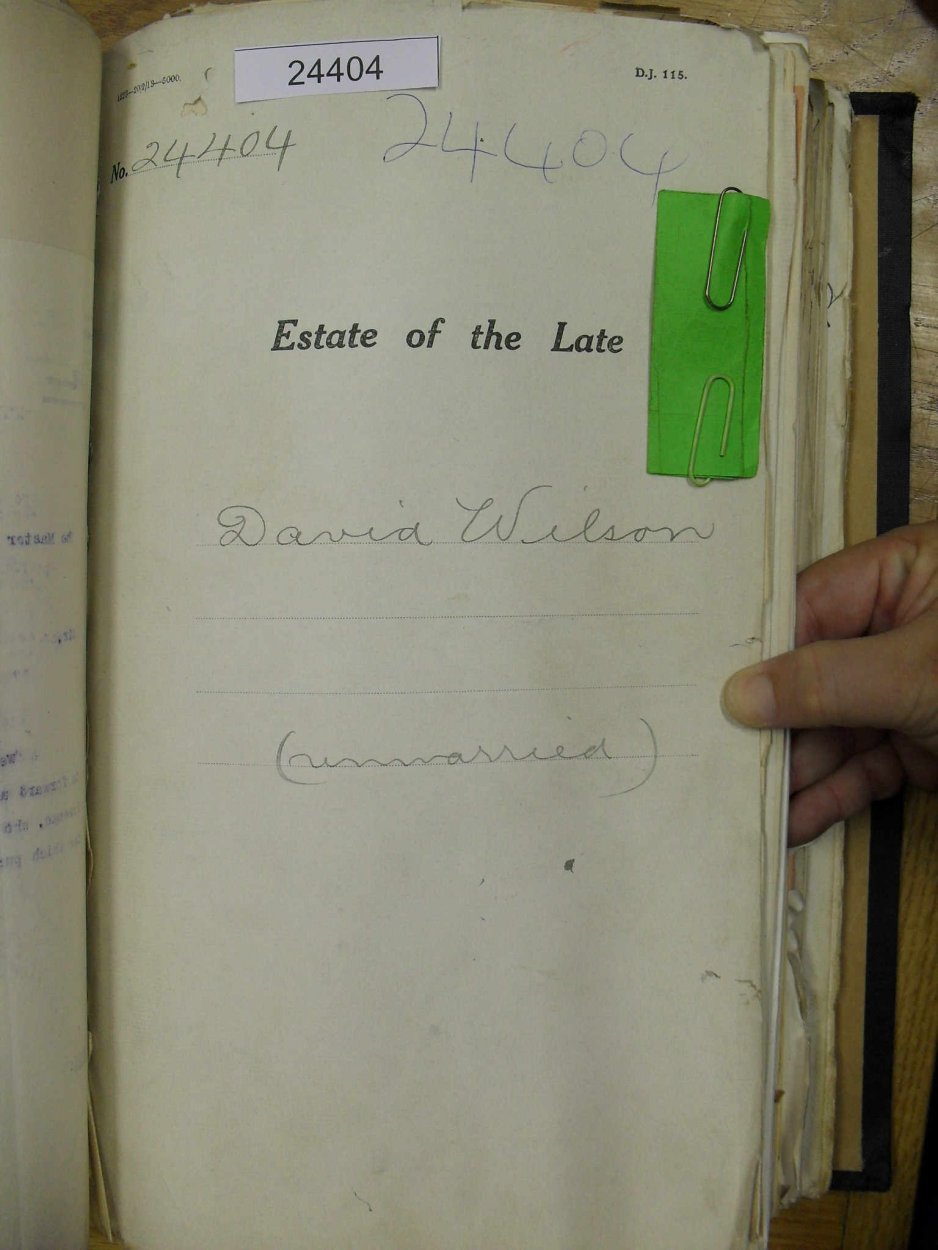 24404
D.J. 115.
No. 24404
24404
Estate of the Late
David Wilson
(unmarried)